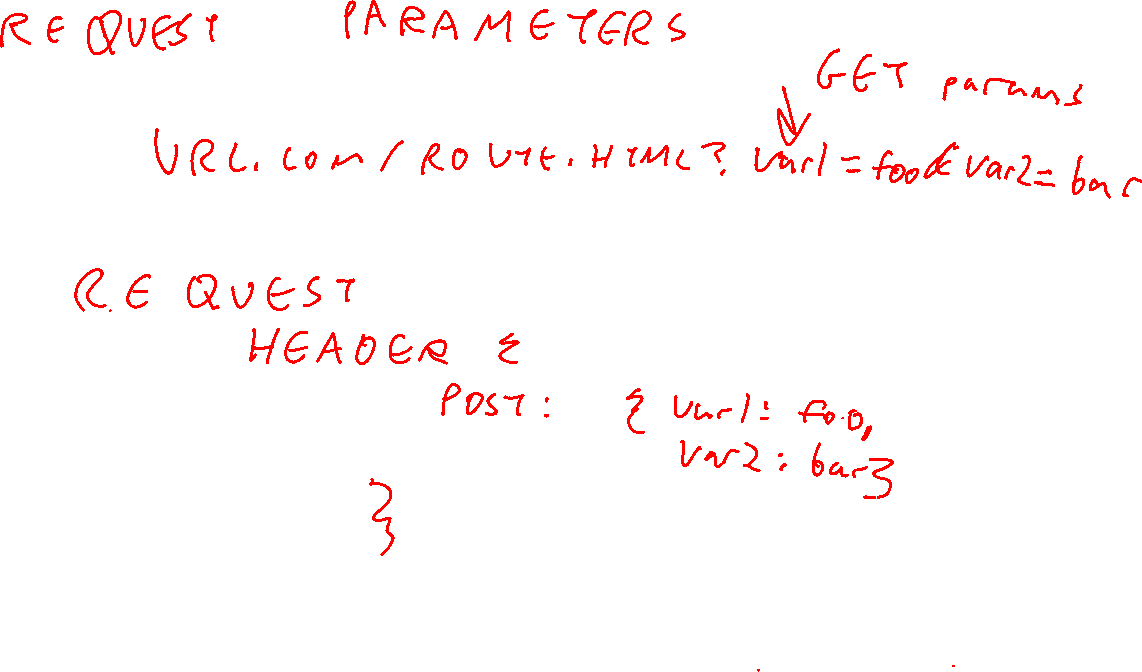 REQUEST PARAMETERS
GET params
URL.COM/ROUTE.HTML?var1=foo&var2=bar
REQUEST
HEADER {
POST: { var1: foo,
var2: bar}
}